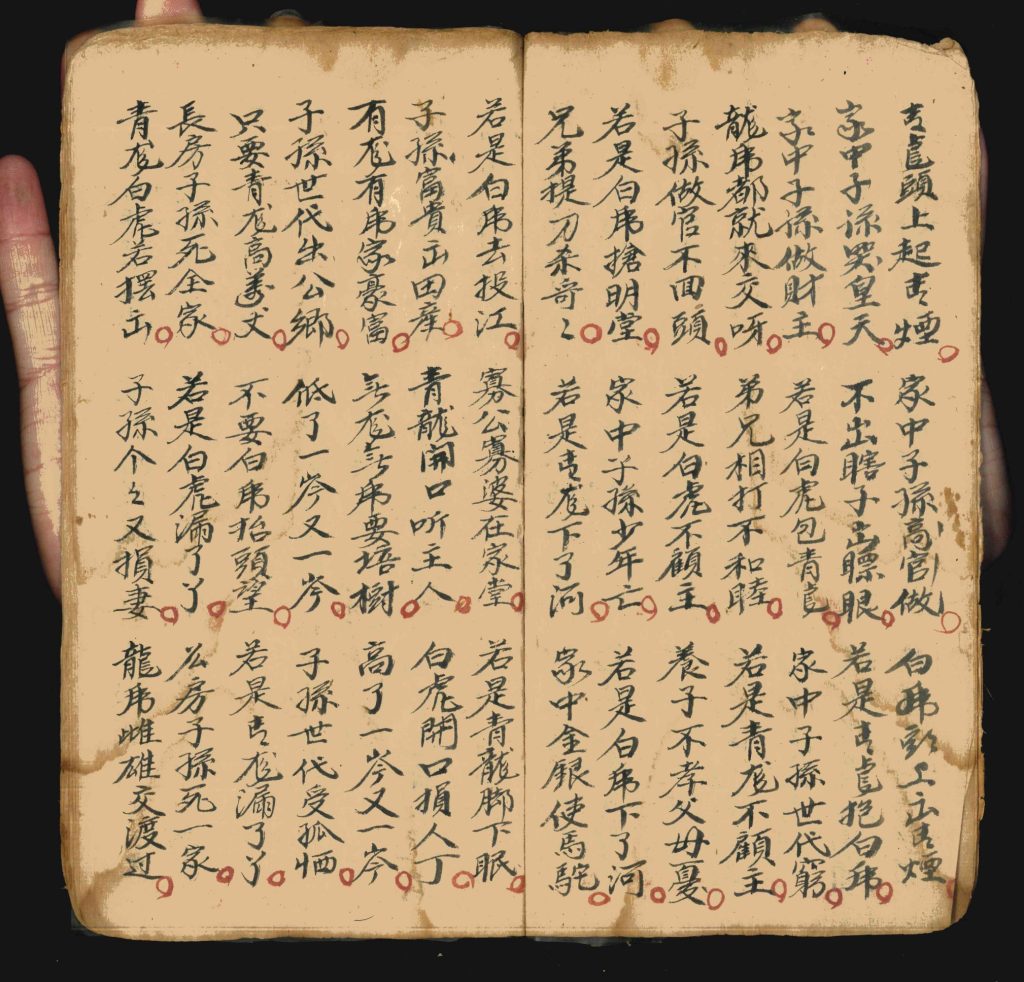 青龙頭上起青煙 家中子孫高官做 白乕頭上出青煙
家中子孫哭皇天 不出瞎子出瞟眼 若是青龙抱白乕
家中子孫做財主 若是白虎包青龙 家中子孫世代窮
龍乕都就來交呀 弟兄相打不和睦 若是青龙不顧主
子孫做官不回頭 若是白虎不顧主 養子不孝父母憂
若是白乕搶明堂 家中子孫少年亡 若是白乕下了河
兄弟提刀杀哥〻 若是青龙下了河 家中金銀使馬駝
若是白乕去投江 寡公寡婆在家堂 若是青龍脚下眠
子孫富貴出田庄 青龍開口听主人 白虎開口損人丁
有龙有乕家豪富 無龙無乕要培樹 高了一岑又一岑
子孫世代出公鄉 低了一岑又一岑 子孫世代受孤恓
只要青龙高萬丈 不要白乕抬頭望 若是青龙漏了丫
長房子孫死全家 若是白虎漏了丫 公房子孫死一家
青龙白虎若擺出 子孫个〻又損妻 龍乕雌雄交渡过